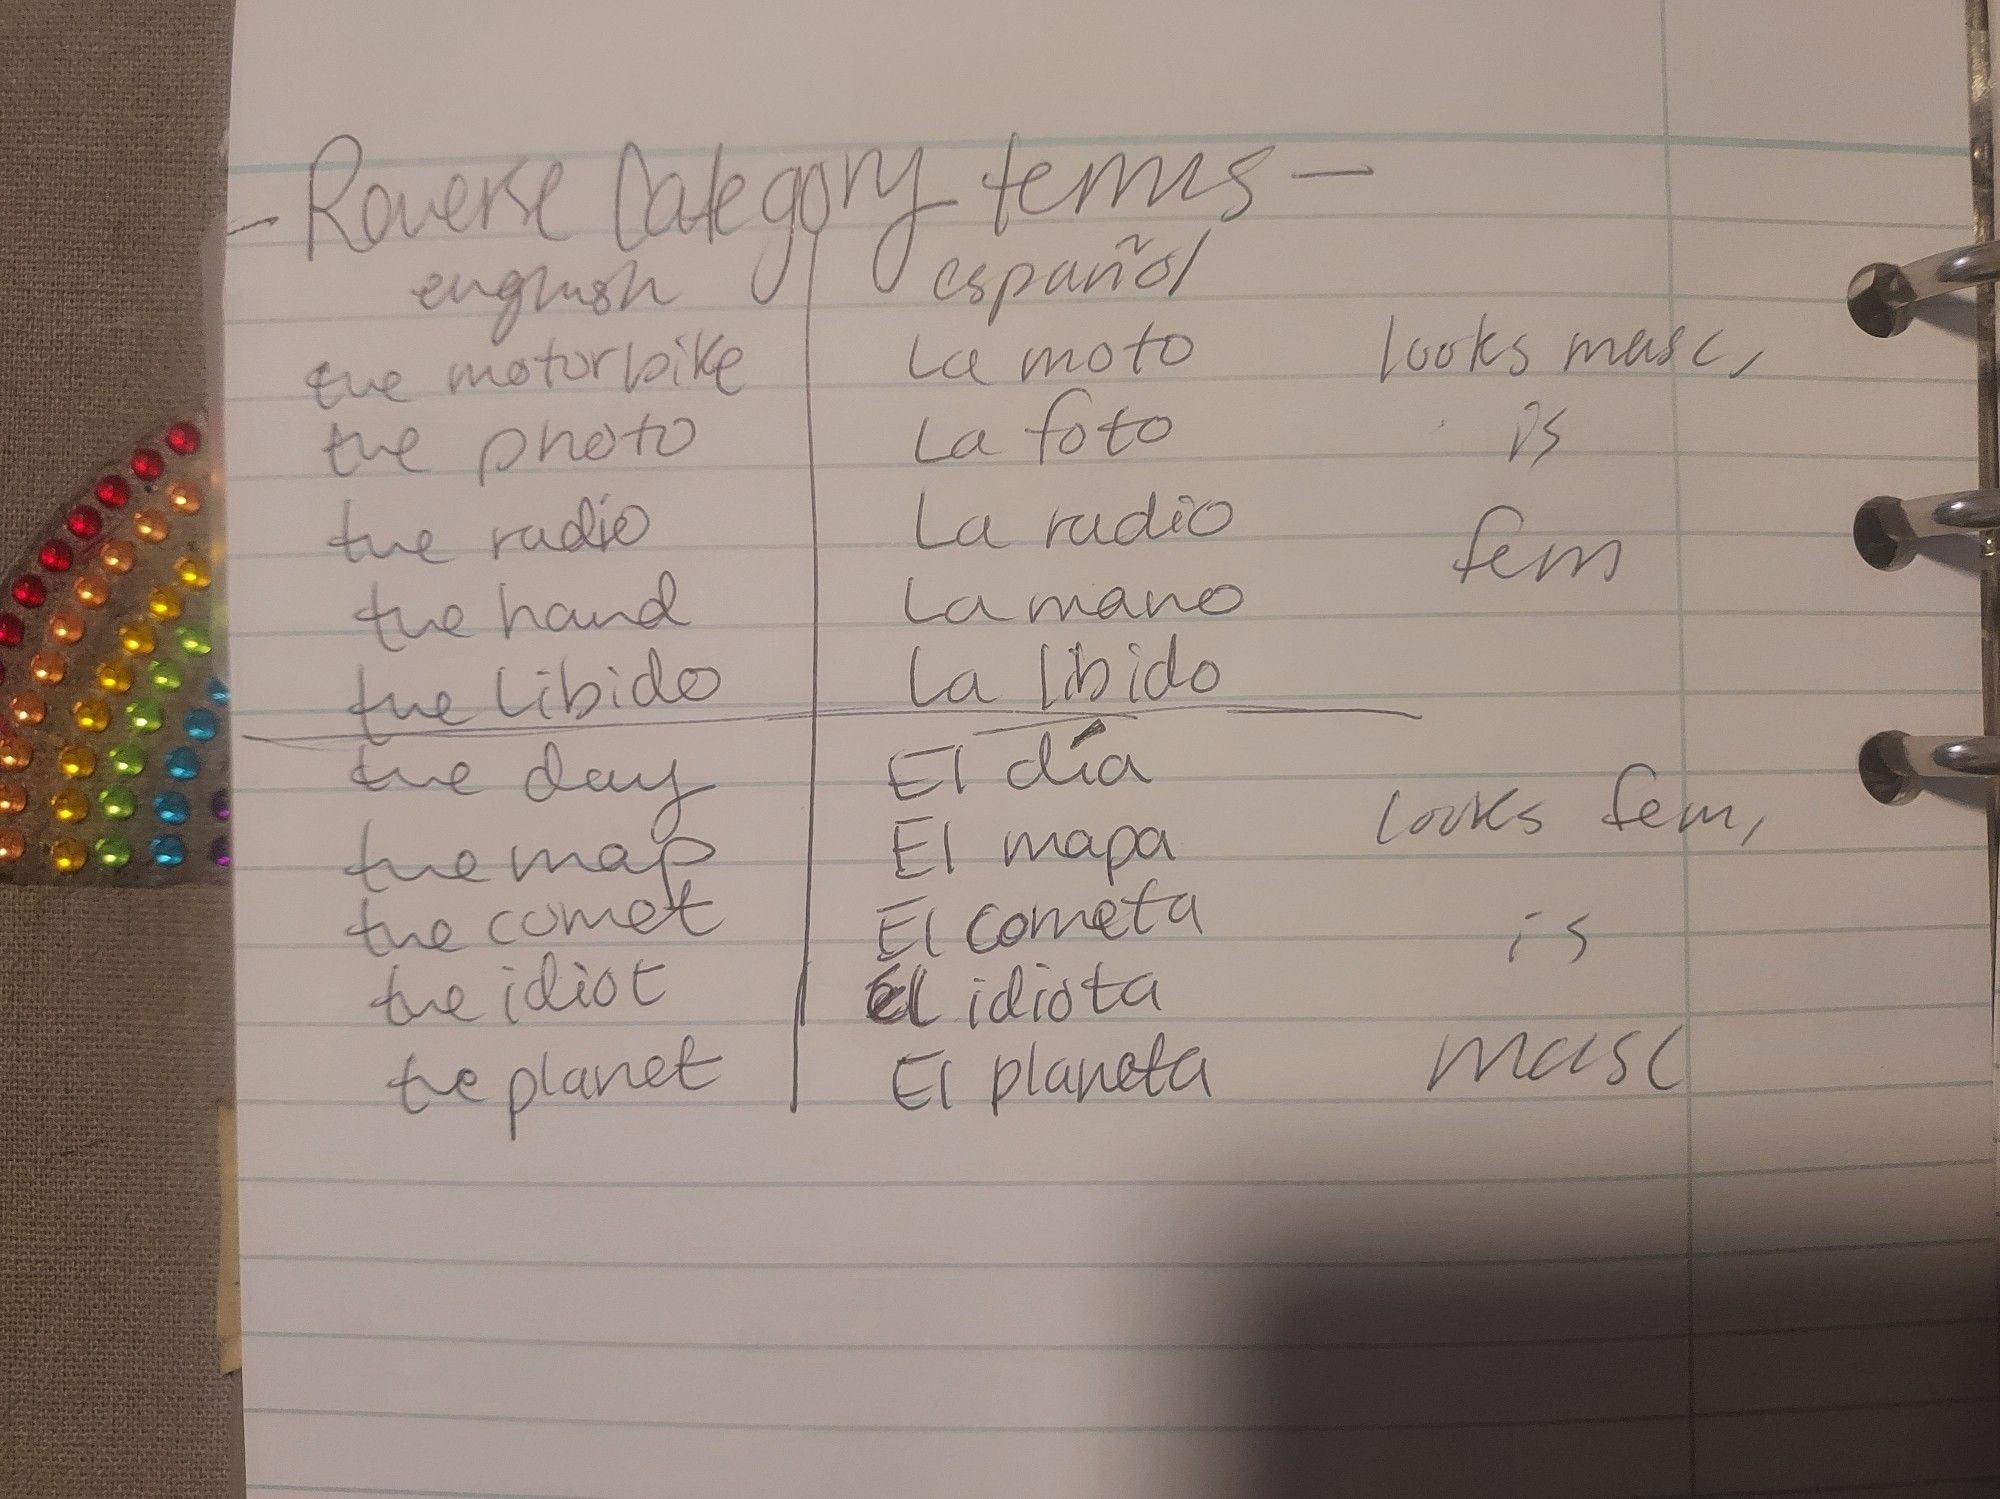 - Reverse Category terms -
english español
the motorbike La moto looks masc,
the photo La foto is
the radio La radio fem
the hand La mano
the libido La libido
the day El día
the map El mapa looks fem,
the comet El cometa is
the idiot El idiota
the planet El planeta masc